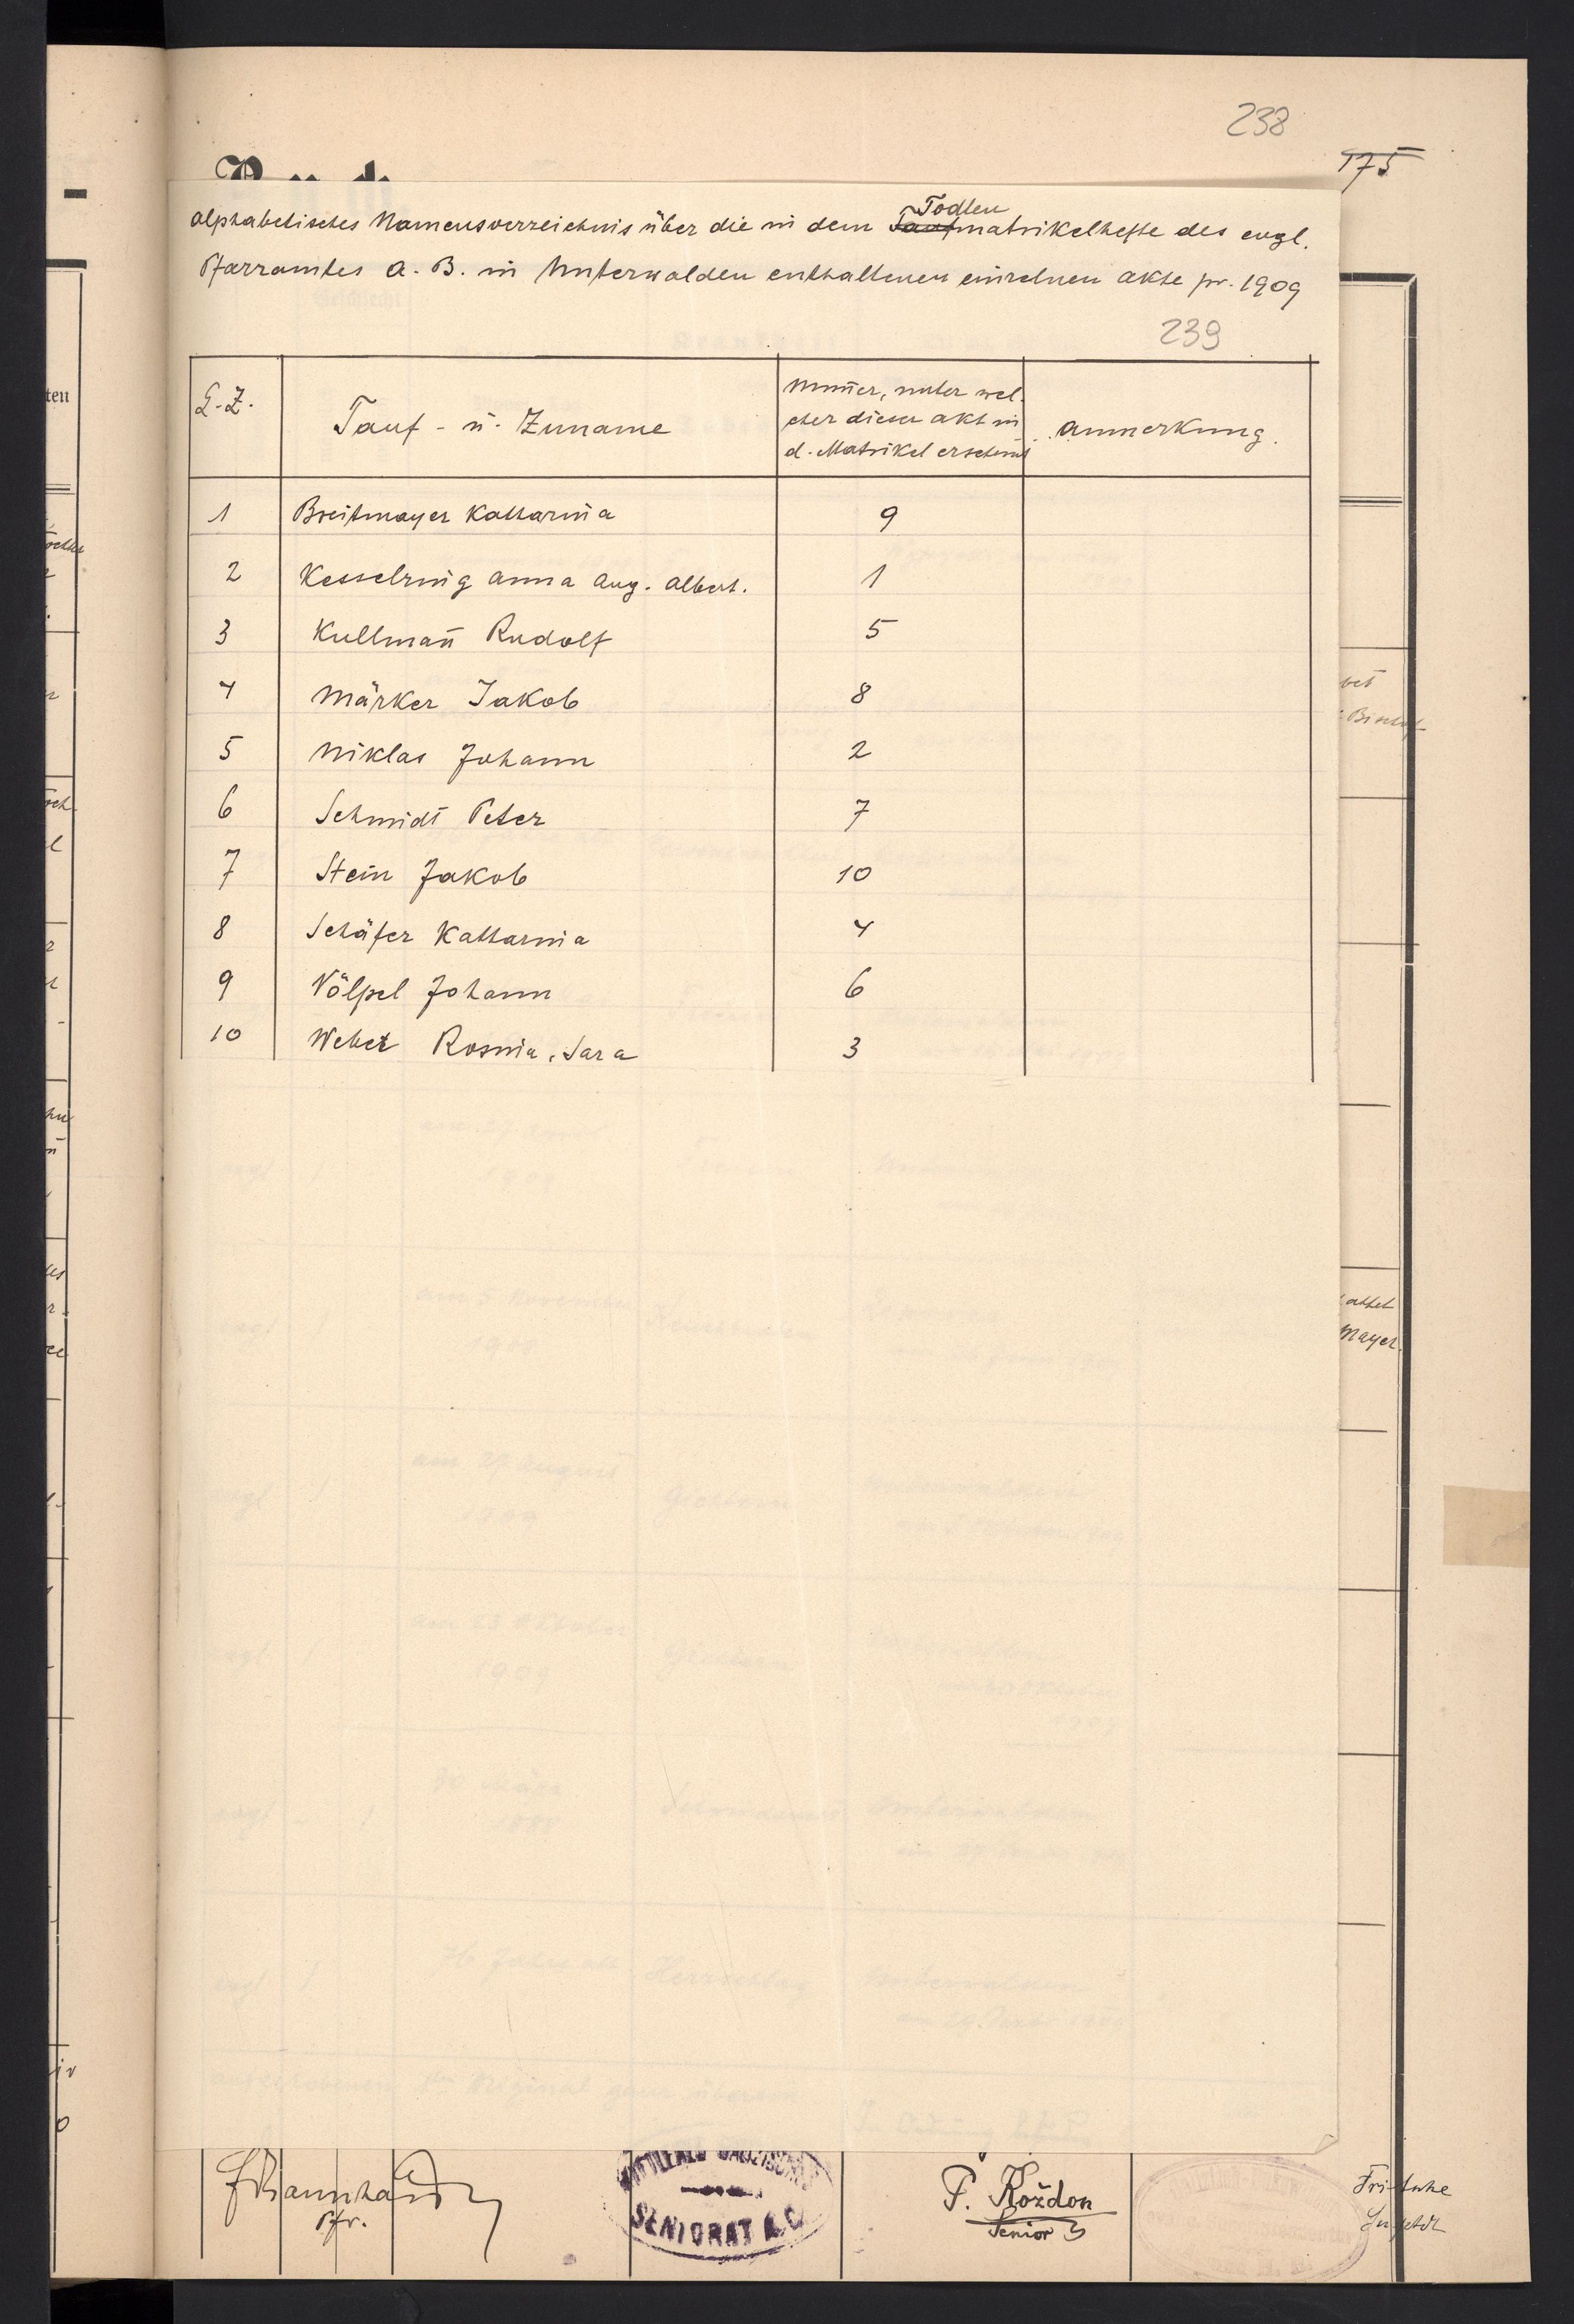 238
175
Alphabetisches Namensverzeichnis über die in dem Todtenmatrikelhefte des evgl.
Pfarramtes A. B. in Unterwalden enthaltenen einzelnen Akte pr. 1909
239
L.-Z. Tauf- u. Zuname Num̄er, unter wel-
cher dieser Akt in
d. Matrikel erscheint Anmerkung.
1 Breitmayer Katharina 9
2 Kesselring Anna Aug. Albert. 1
3 Kullman̄ Rudolf 5
4 Märker Jakob 8
5 Niklas Johann 2
6 Schmidt Peter 7
7 Stein Jakob 10
8 Schäfer Katharina 4
9 Völpel Johann 6
10 Weber Rosina, Sara 3
Mayer
Pfr.
SENIORAT A.C.
P. Kożdon
Senior